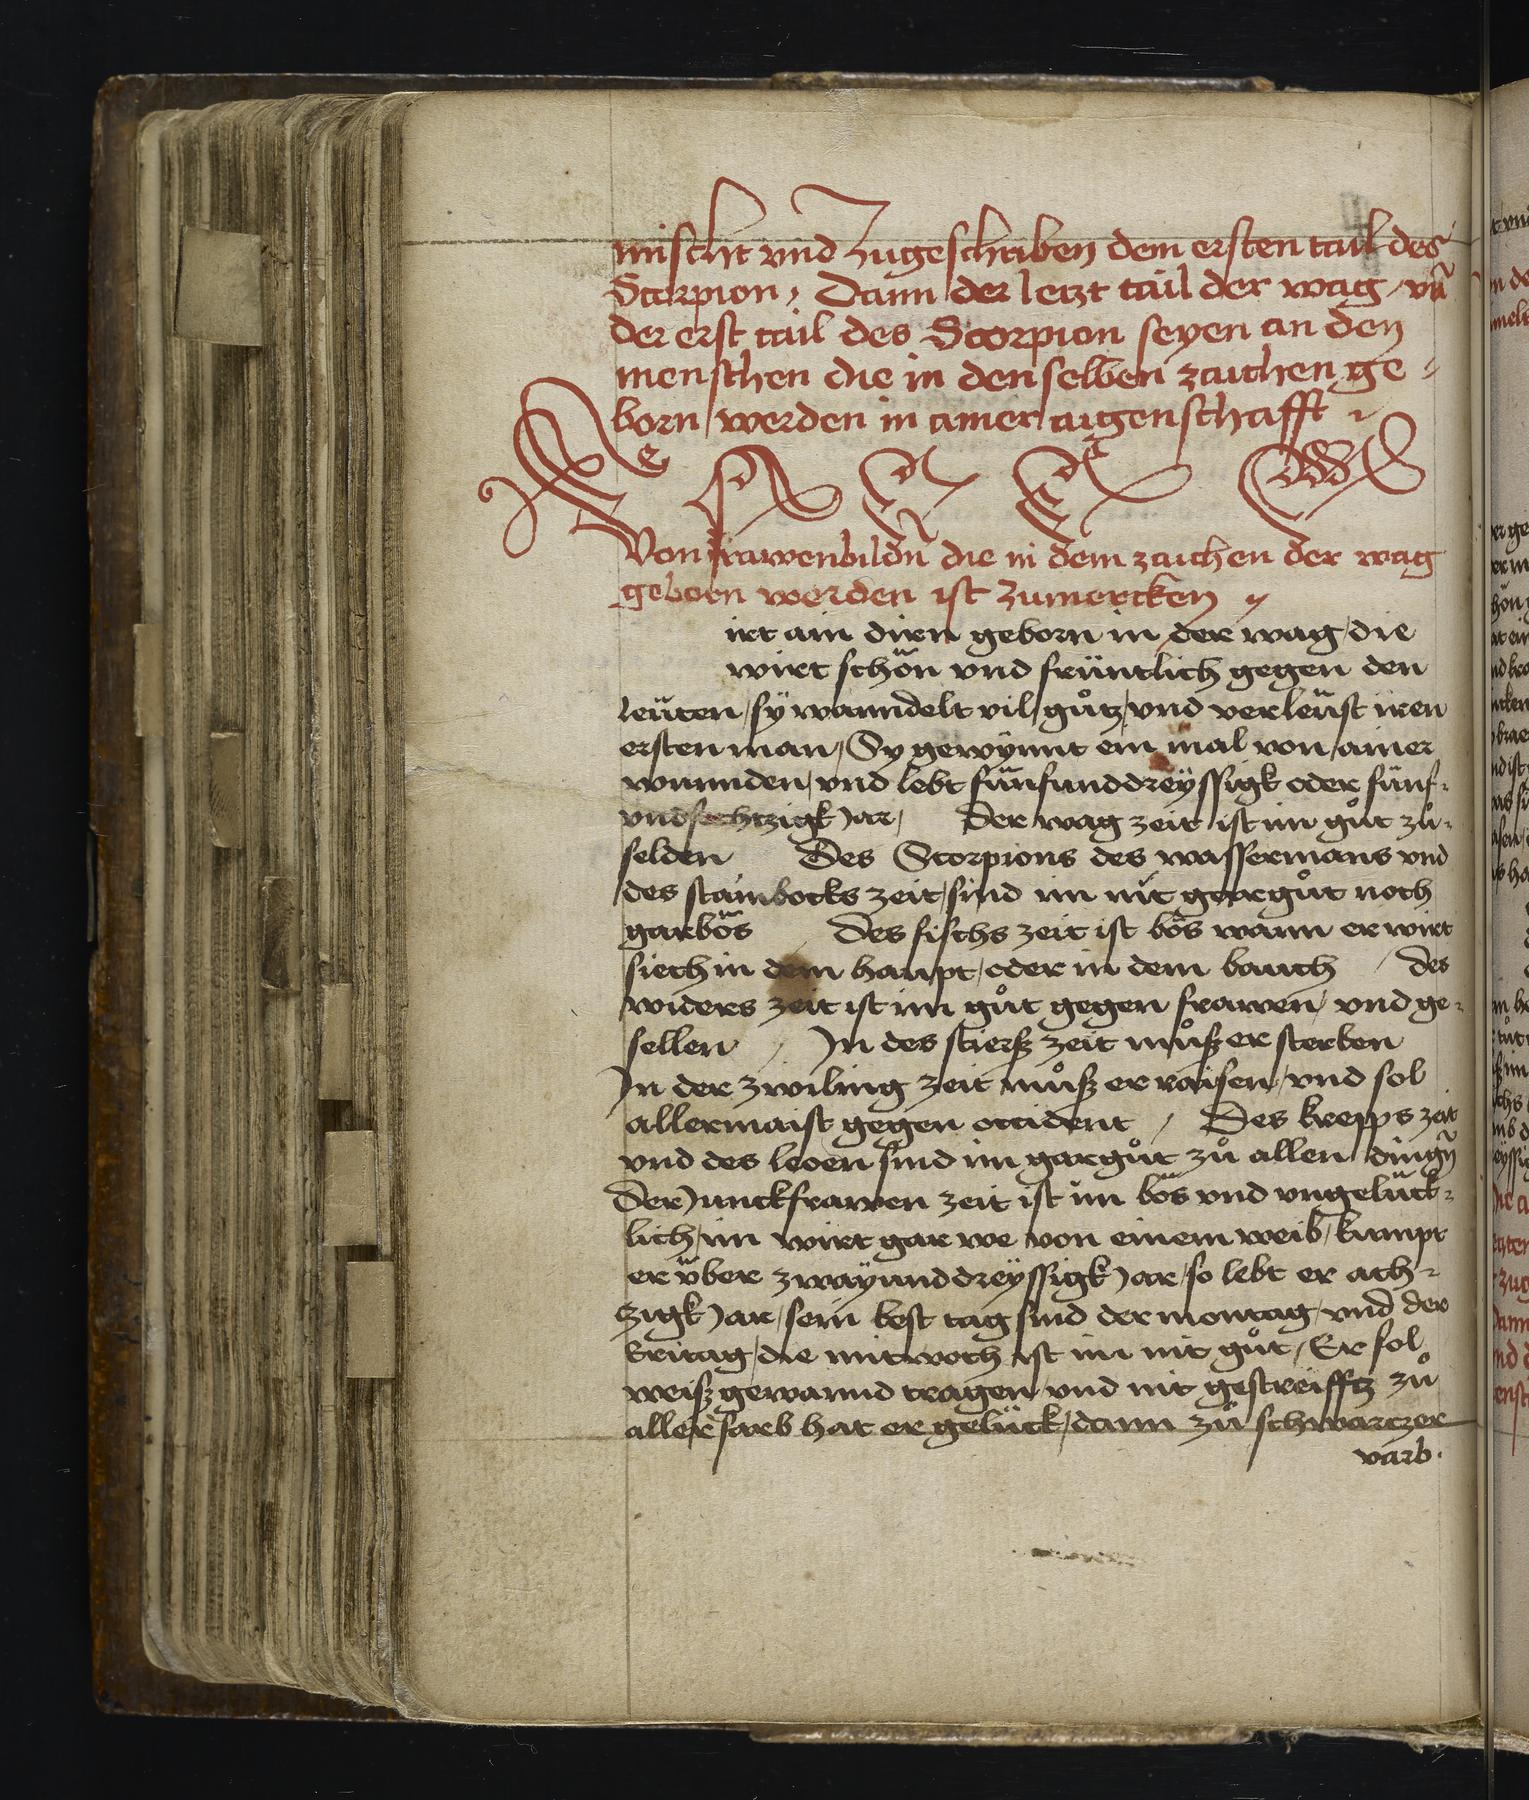 mischt vnd zugeschriben dem ersten tail des
Scorpion, Dann der letzt tail der wag vn̄
der erst tail des Scorpion seyen an den
menschen die in denselben zaichen ge-
born werden in ainer aigenschafft
Von frawenbildn̄ die in dem zaichen der wag
geborn werden ist zumercken
irt ain dirn geborn in der wag / die
wirt schön vnd früntlich gegen den
leüten / sÿ wanndelt vil gůtz / vnd verleüst iren
ersten man / Sy gewÿnnt ein mal von ainer
wunnden / vnd lebt fünfunddreÿssigk oder fünf-
vndsechtzigk Jar / Der wag zeit ist im gůt zů-
selden Des Scorpions des wassermans vnd
des stainbocks zeit / sind im nit gar gůt noch
gar bös Des fischs zeit ist bös wann er wirt
siech in dem haupt / oder in dem bauch / Des
widers zeit ist im gůt gegen frawen / vnd ge-
sellen / In des stierß zeit můß er sterben
In der zwiling zeit můß er raisen / vnd sol
allermaist gegen occident / Des krepps zeit
vnd des leoen sind im gar gůt zů allen dingn̄
Der Junckfrawen zeit ist im bös vnd vngelück-
lich / im wirt gar we von einem weib / kumpt
er über zwaÿunddreÿssigk Jar / so lebt er ach-
zigk Jar / sein best tag sind der montag / vnd der
Eritag / die mitwoch ist im nit gůt / Er sol
weiß gewannd tragen vnd nit gestreifftz zů
aller farb hat er gelück / dann zů schwartzer
varb.